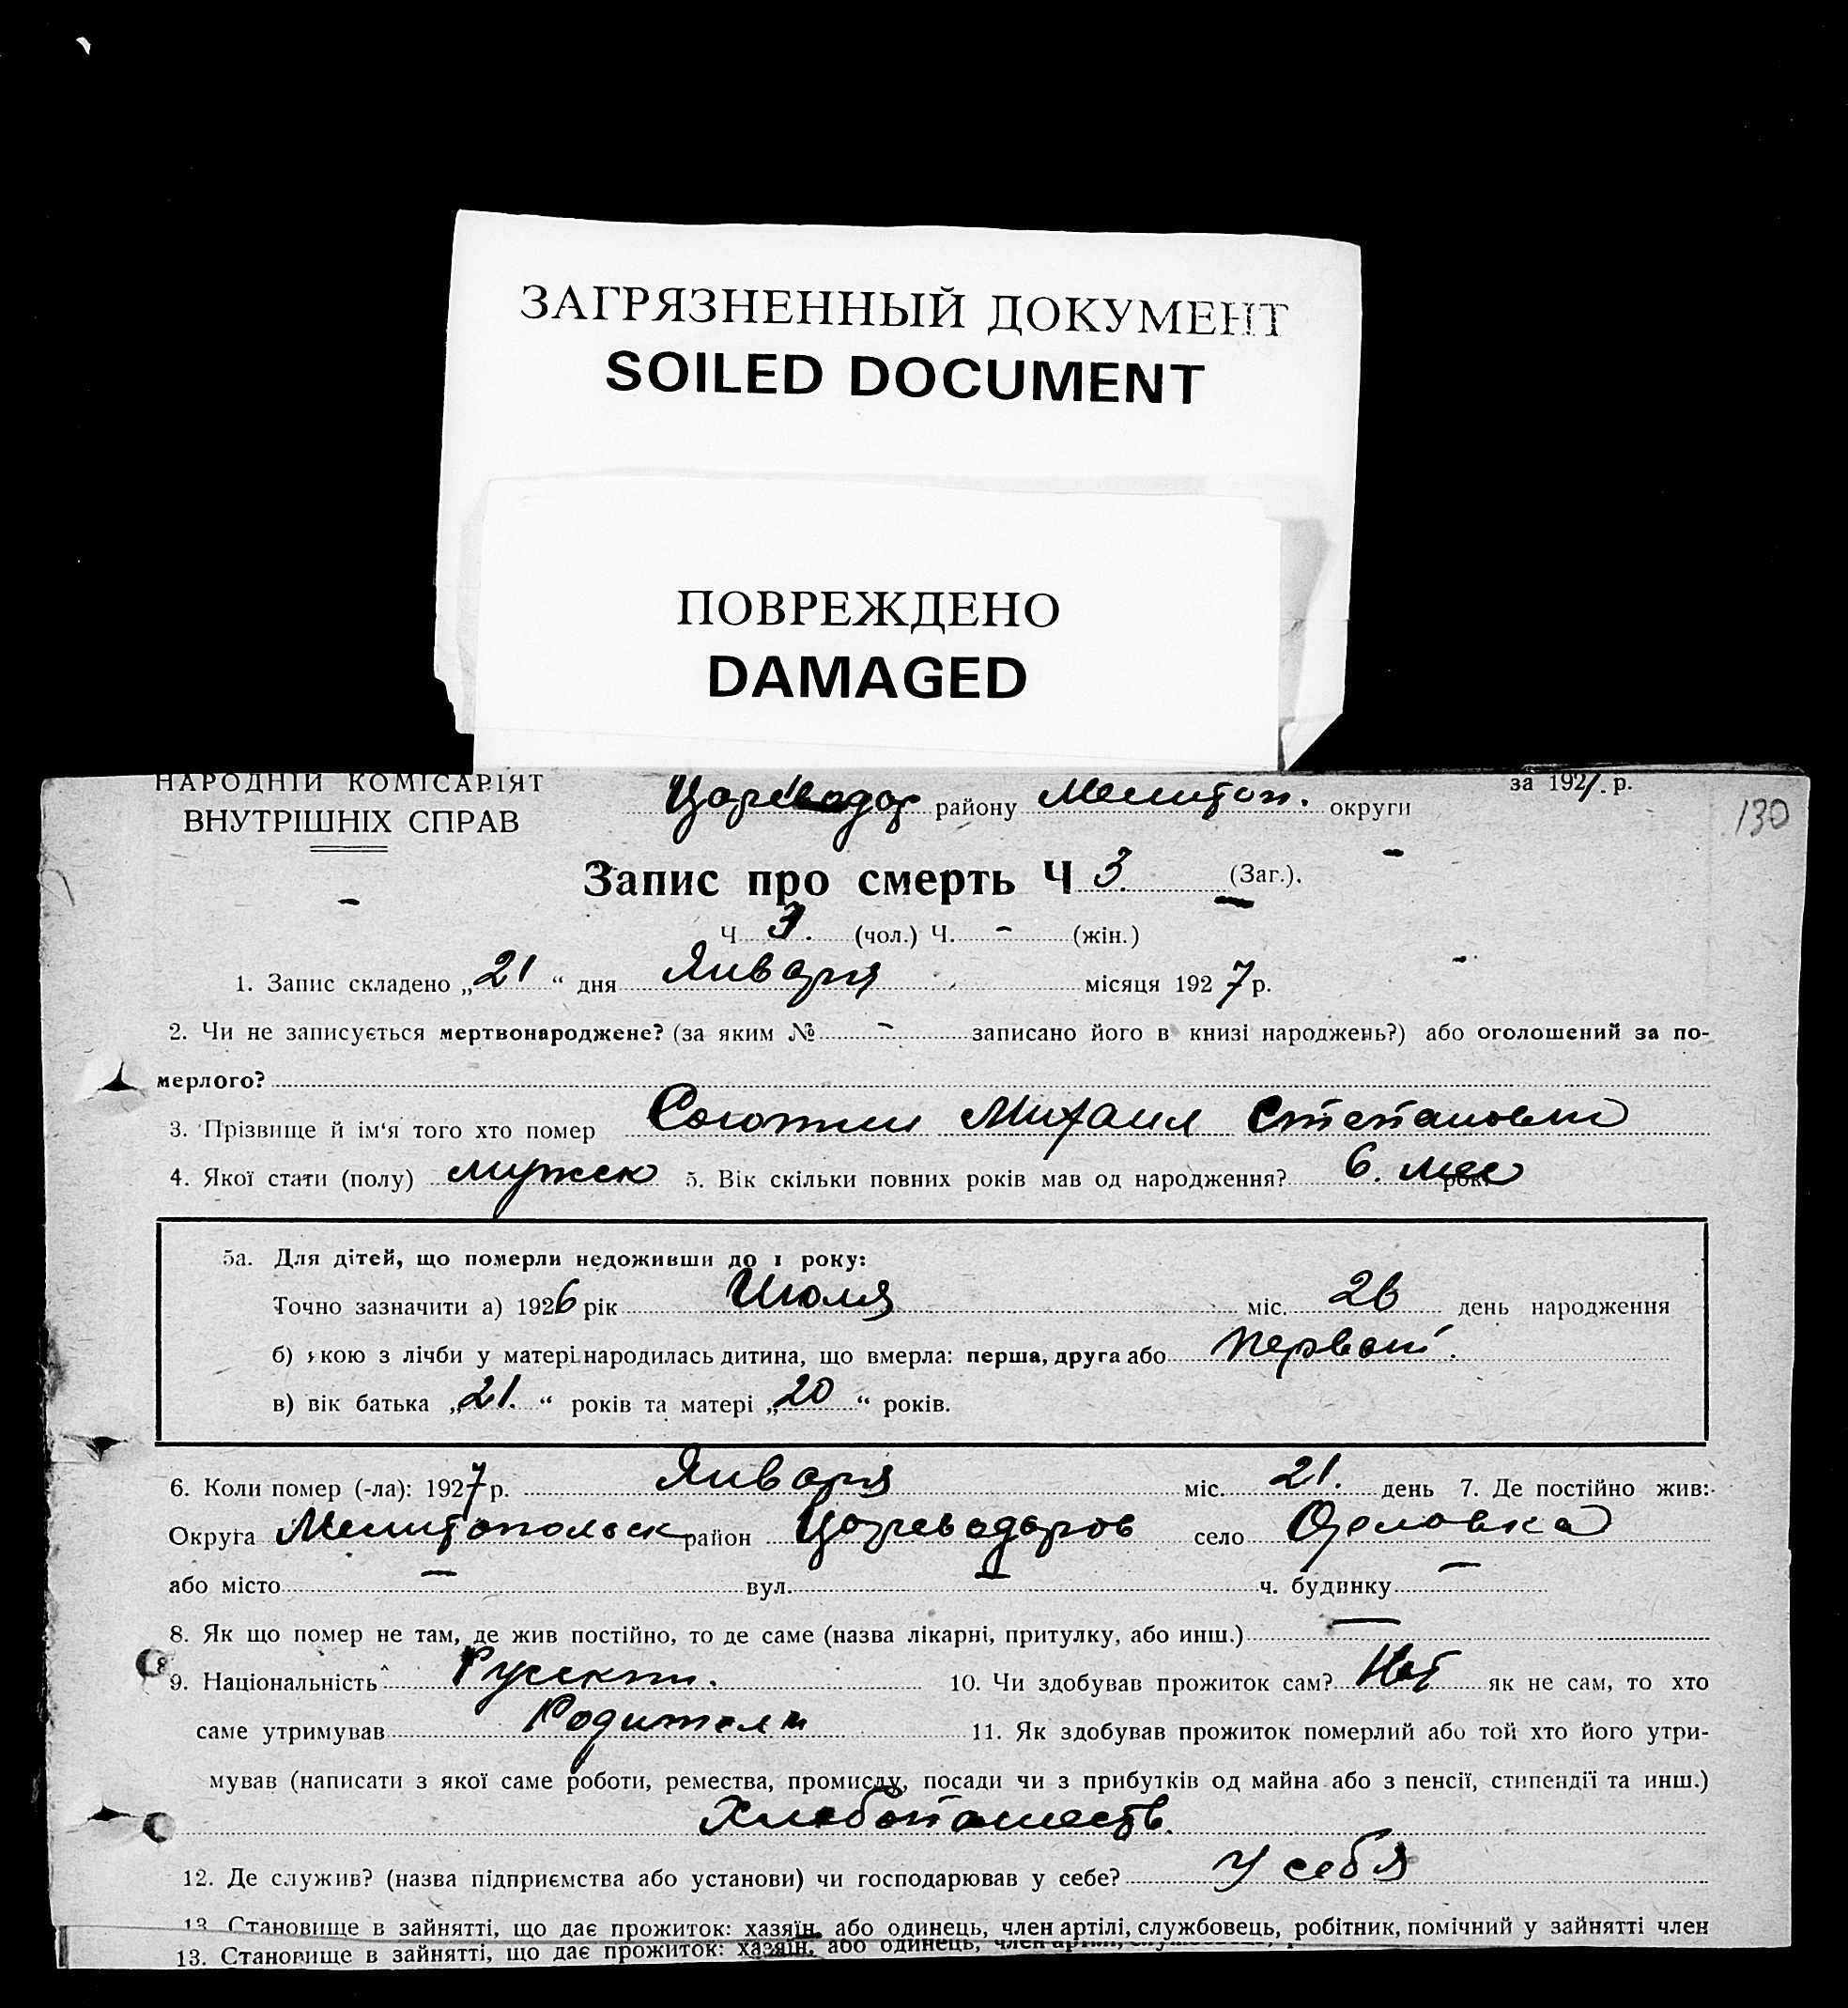 ЗАГРЯЗНЕННЫЙ ДОКУМЕНТ
SOILED DOCUMENT
ПОВРЕЖДЕНО
DAMAGED
НАРОДНІЙ КОМІСАРІЯТ
ВНУТРІШНІХ СПРАВ
району Мелитоп. округи
за 1927. р.
130
Запис про смерть Ч 3 (Заг.).
Ч 3. (чол.) Ч. - (жін.)
1. Запис складено „21“ дня Января місяця 1927 р.
2. Чи не записується мертвонароджене? (за яким № - записано його в книзі народжень?) або оголошений за по-
мерлого?
3. Прізвище й ім'я того хто помер Михаил Степанович
4. Якої стати (полу) мужск 5. Вік скільки повних років мав од народження? 6. мес рок
5а. Для дітей, що померли недоживши до 1 року:
Точно зазначити а) 1926 рік Июля міс. 26 день народження
б) якою з лічби у матері народилась дитина, що вмерла: перша, друга або первой.
в) вік батька „21.“ років та матері „20“ років.
6. Коли помер (-ла): 1927 р. Января міс. 21. день 7. Де постійно жив:
Округа Мелитопольск район Цареводаров село Орловка
або місто — вул. — ч. будинку —
8. Як що помер не там, де жив постійно, то де саме (назва лікарні, притулку, або инш.) —
9. Національність Русский. 10. Чи здобував прожиток сам? Нет як не сам, то хто
саме утримував Родители 11. Як здобував прожиток померлий або той хто його утри-
мував (написати з якої саме роботи, ремества, промислу, посади чи з прибутків од майна або з пенсії, стипендії та инш.)
Хлебопашеств.
12. Де служив? (назва підприємства або установи) чи господарював у себе? у себя
13. Становище в зайнятті, що дає прожиток: хазяїн, або одинець, член артілі, службовець, робітник, помічний у зайнятті член
13. Становище в зайнятті, що дає прожиток: хазяїн, або одинець, член артілі,